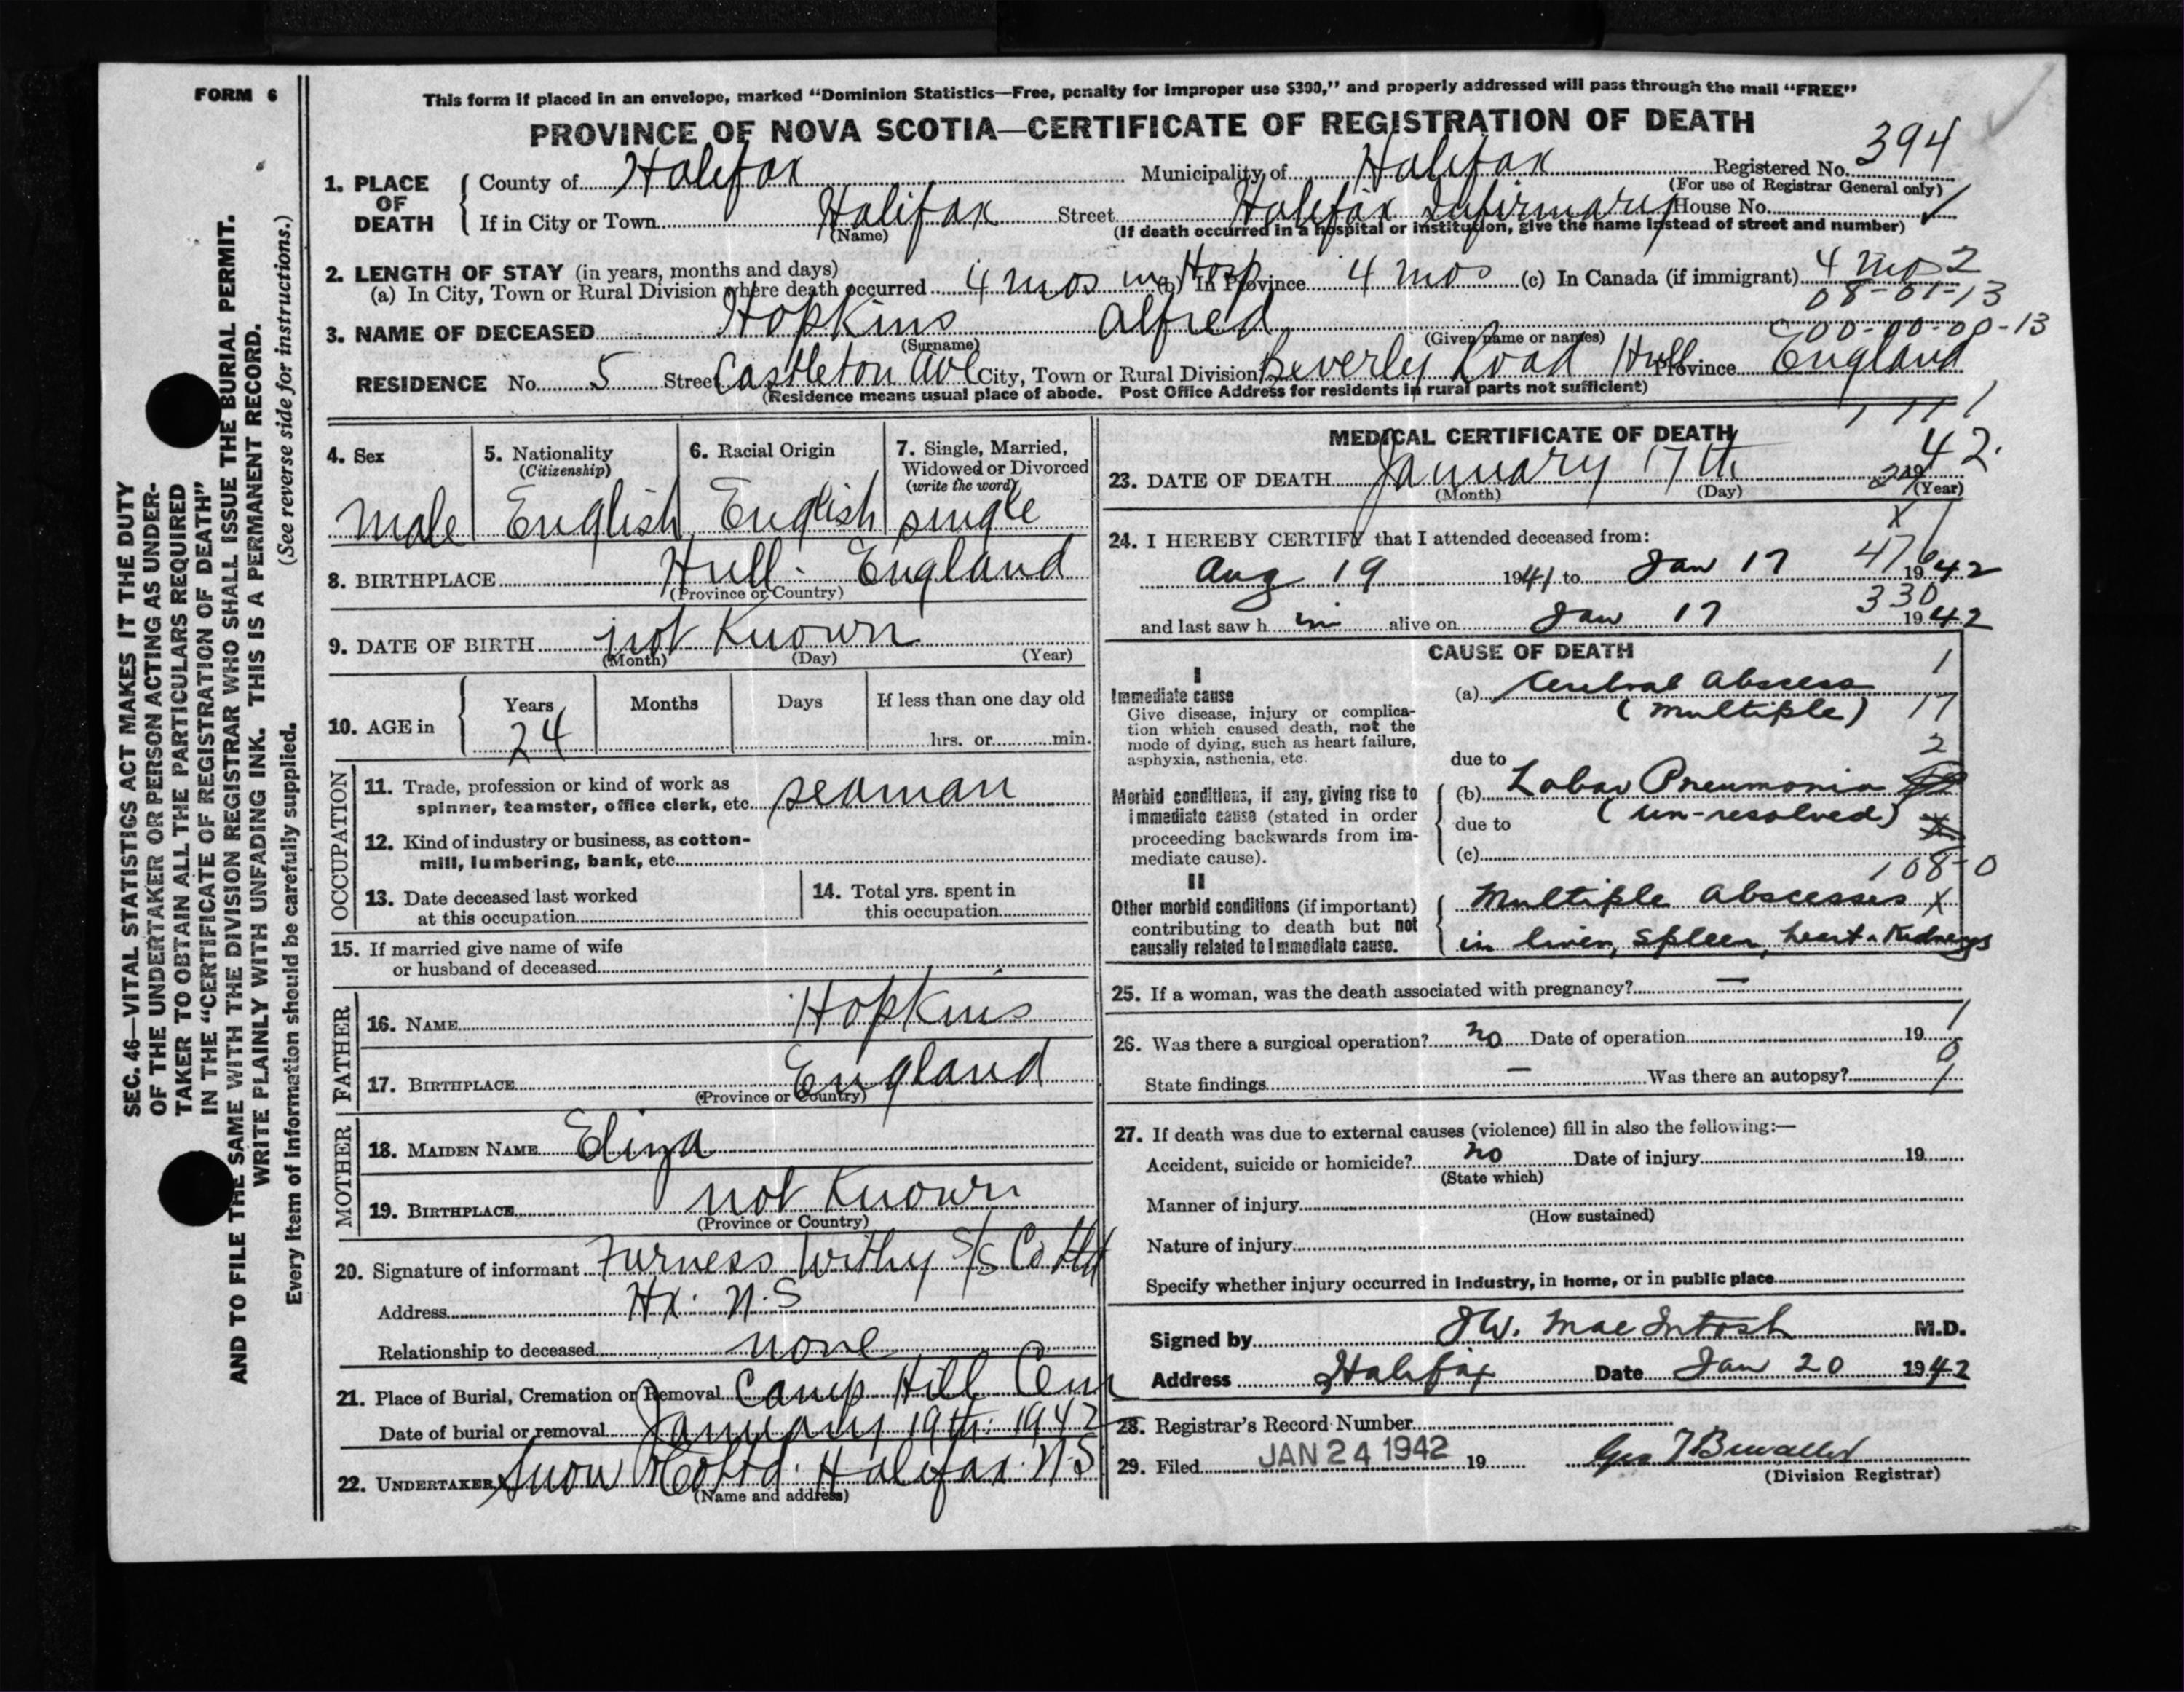 FORM 6
This form if placed in an envelope, marked “Dominion Statistics—Free, penalty for improper use $300,” and properly addressed will pass through the mail “FREE”
PROVINCE OF NOVA SCOTIA—CERTIFICATE OF REGISTRATION OF DEATH
394
1. PLACE OF DEATH
County of Halifax Municipality of Halifax Registered No.
(For use of Registrar General only)
If in City or Town Halifax Street Halifax Infirmary House No.
(Name) (If death occurred in a hospital or institution, give the name instead of street and number)
2. LENGTH OF STAY (in years, months and days)
(a) In City, Town or Rural Division where death occurred 4 mos in Hosp (b) In Province 4 mos (c) In Canada (if immigrant) 4 mos 2
08-01-13
3. NAME OF DECEASED Hopkins Alfred
(Surname) (Given name or names)
00-00-00-13
RESIDENCE No. 5 Street Castleton Ave City, Town or Rural Division Beverly Road Hull Province England
(Residence means usual place of abode. Post Office Address for residents in rural parts not sufficient)
4. Sex
male
5. Nationality
(Citizenship)
English
6. Racial Origin
English
7. Single, Married, Widowed or Divorced
(write the word)
single
8. BIRTHPLACE Hull. England
(Province or Country)
9. DATE OF BIRTH not Known
(Month) (Day) (Year)
10. AGE in
Years Months Days If less than one day old
24 hrs. or min.
OCCUPATION
11. Trade, profession or kind of work as
spinner, teamster, office clerk, etc. seaman
12. Kind of industry or business, as cotton-
mill, lumbering, bank, etc.
13. Date deceased last worked
at this occupation
14. Total yrs. spent in
this occupation
15. If married give name of wife
or husband of deceased
FATHER
16. NAME Hopkins
17. BIRTHPLACE England
(Province or Country)
MOTHER
18. MAIDEN NAME Eliza
19. BIRTHPLACE not Known
(Province or Country)
20. Signature of informant Furness Withy S/S Co Ltd
Address Hx. N.S
Relationship to deceased none
21. Place of Burial, Cremation or Removal Camp Hill Cem
Date of burial or removal January 19th: 1942
22. UNDERTAKER Snow & Co Ltd. Halifax. N.S
(Name and address)
MEDICAL CERTIFICATE OF DEATH
23. DATE OF DEATH January 17th 1942.
(Month) (Day) (Year)
24. I HEREBY CERTIFY that I attended deceased from:
Aug 19 1941 to Jan 17 1942
and last saw h im alive on Jan 17 1942
330
CAUSE OF DEATH
I
Immediate cause
Give disease, injury or complica-
tion which caused death, not the
mode of dying, such as heart failure,
asphyxia, asthenia, etc.
(a) Cerebral Abscess 1
(multiple) 17
due to 2
Morbid conditions, if any, giving rise to
immediate cause (stated in order
proceeding backwards from im-
mediate cause).
(b) Lobar Pneumonia
due to (un-resolved)
(c)
108-0
II
Other morbid conditions (if important)
contributing to death but not
causally related to immediate cause.
Multiple Abscesses x
in liver, spleen, heart & Kidneys
25. If a woman, was the death associated with pregnancy? —
26. Was there a surgical operation? no Date of operation 19
State findings — Was there an autopsy?
27. If death was due to external causes (violence) fill in also the following:—
Accident, suicide or homicide? no Date of injury 19
(State which)
Manner of injury
(How sustained)
Nature of injury
Specify whether injury occurred in industry, in home, or in public place
Signed by J W. MacIntosh M.D.
Address Halifax Date Jan 20 1942
28. Registrar’s Record Number
29. Filed JAN 24 1942 19
(Division Registrar)
SEC. 46—VITAL STATISTICS ACT MAKES IT THE DUTY
OF THE UNDERTAKER OR PERSON ACTING AS UNDER-
TAKER TO OBTAIN ALL THE PARTICULARS REQUIRED
IN THE “CERTIFICATE OF REGISTRATION OF DEATH”
AND TO FILE THE SAME WITH THE DIVISION REGISTRAR WHO SHALL ISSUE THE BURIAL PERMIT.
WRITE PLAINLY WITH UNFADING INK. THIS IS A PERMANENT RECORD.
Every item of information should be carefully supplied. (See reverse side for instructions.)